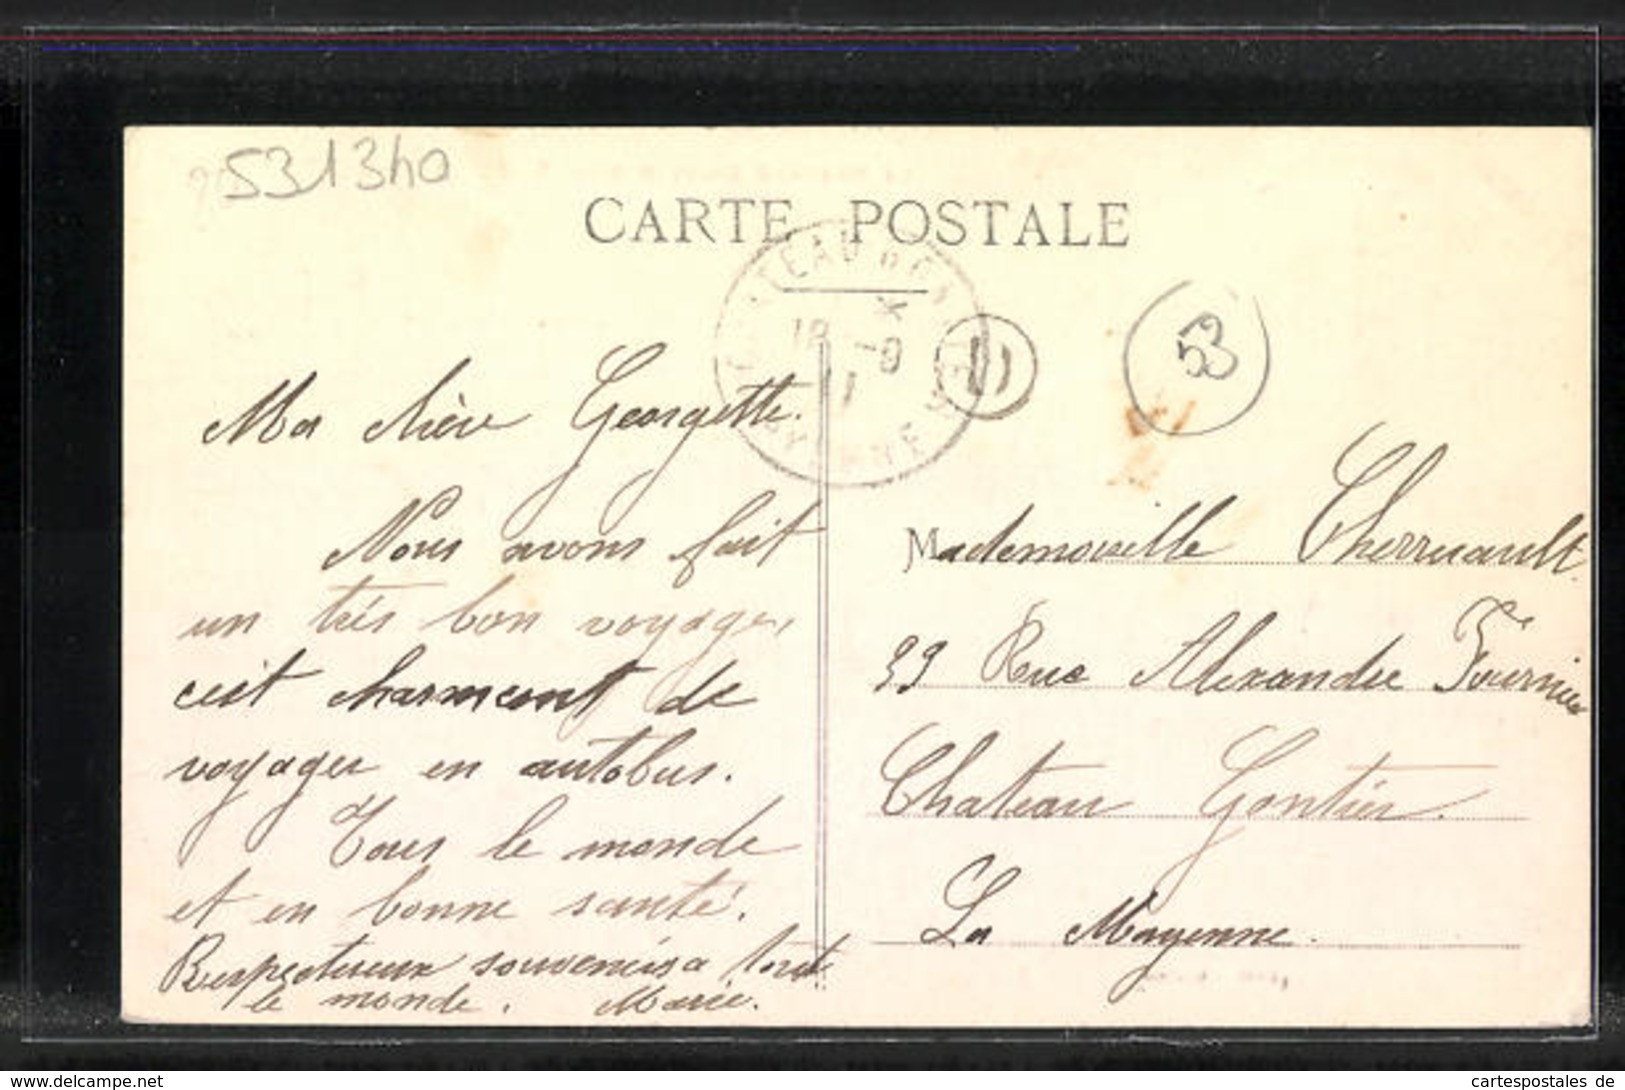 531340
CARTE POSTALE
TEAU
18 -9
11
53
Ma chère Georgette.
Nous avons fait
un très bon voyage,
cest charmant de
voyager en autobus.
Tous le monde
et en bonne santé.
Respectueux souvenirs a tout
le monde. Marie.
Mademoiselle Cherruault
39 Rue Alexandre Fournier
Chateau Gontier.
La Mayenne.
www.delcampe.net
cartespostales de